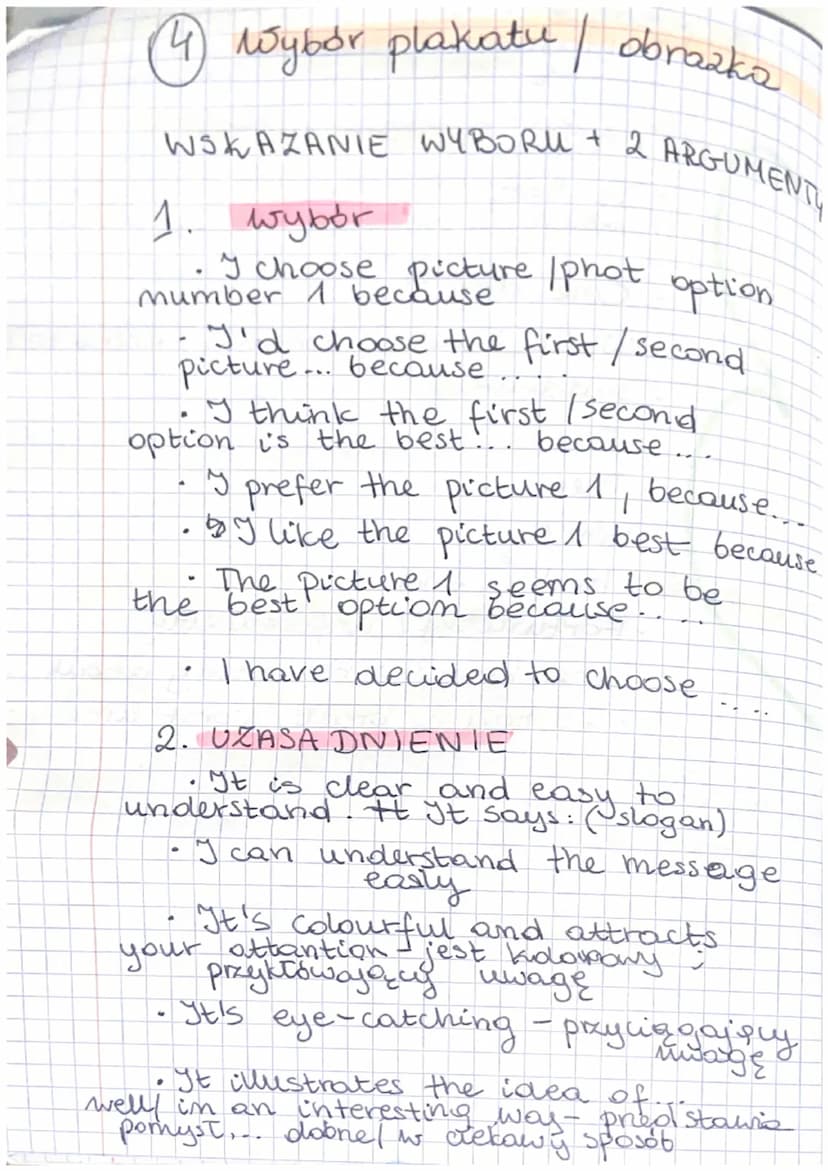 4 Wybór plakatu / obrazka
WSKAZANIE WYBORU + 2 ARGUMENTY
1. Wybór
· I choose picture /phot option
number 1 because
- I'd choose the first / second
picture... because ....
· I think the first /second
option is the best!... because...
· I prefer the picture 1, because...
· I like the picture 1 best because
· The picture 1 seems to be
the best option because.....
· I have decided to choose ....
2. UZASADNIENIE
· It is clear and easy to
understand. It says: (slogan)
· I can understand the message
easly
· It's colourful and attracts
your attantion - jest kolorowy i
przykłówający uwagę
· It's eye-catching - przyciągający
uwagę
· It illustrates the idea of...
well/ in an interesting way - przedstawia
pomysł... dobrze/ w ciekawy sposób